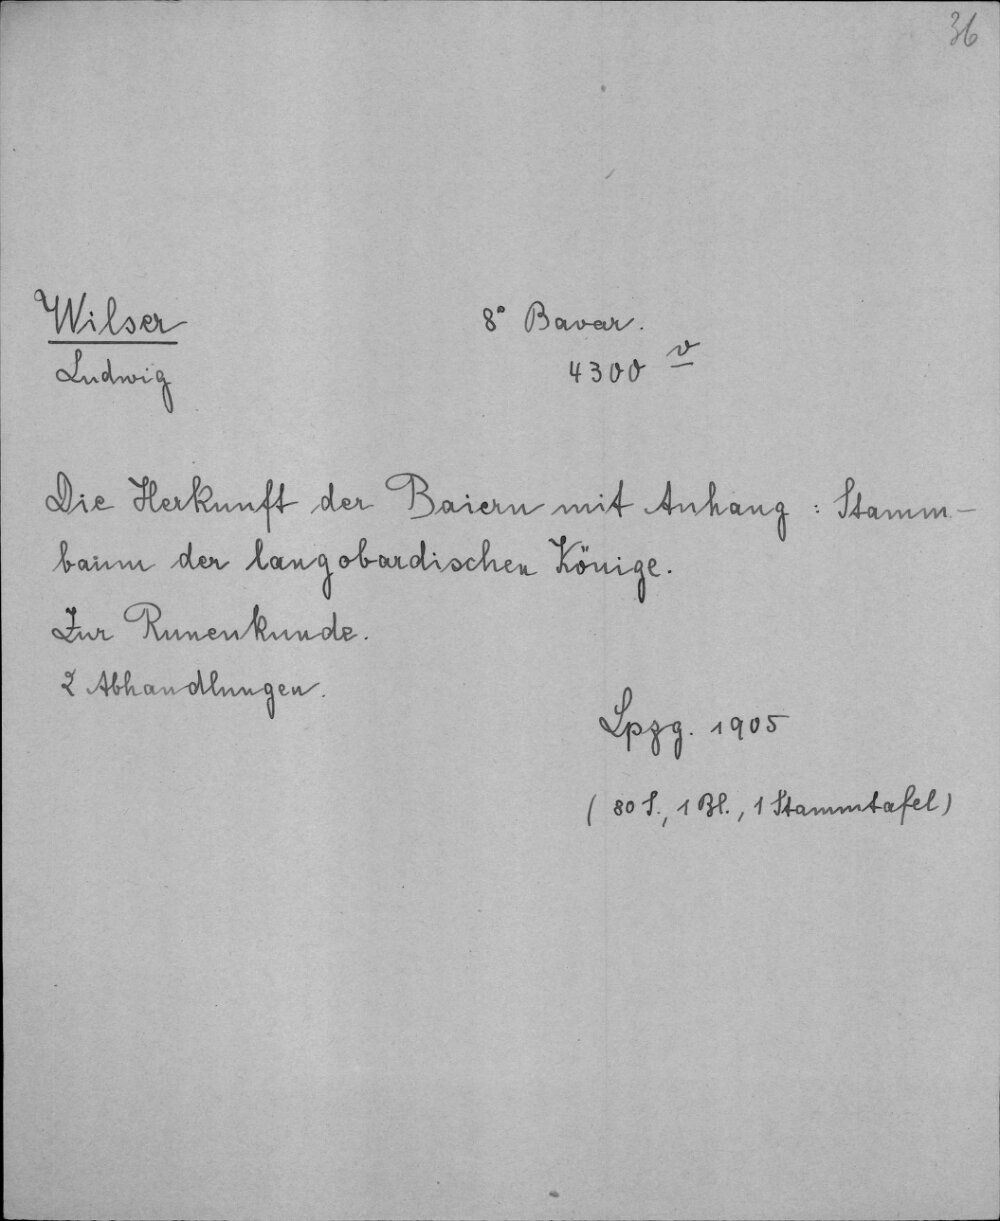 36
Wilser
Ludwig
8° Bavar.
4300 v
Die Herkunft der Baiern mit Anhang : Stamm-
baum der langobardischen Könige.
Zur Runenkunde.
2 Abhandlungen.
Lpzg. 1905
( 80 S., 1 Bl., 1 Stammtafel)